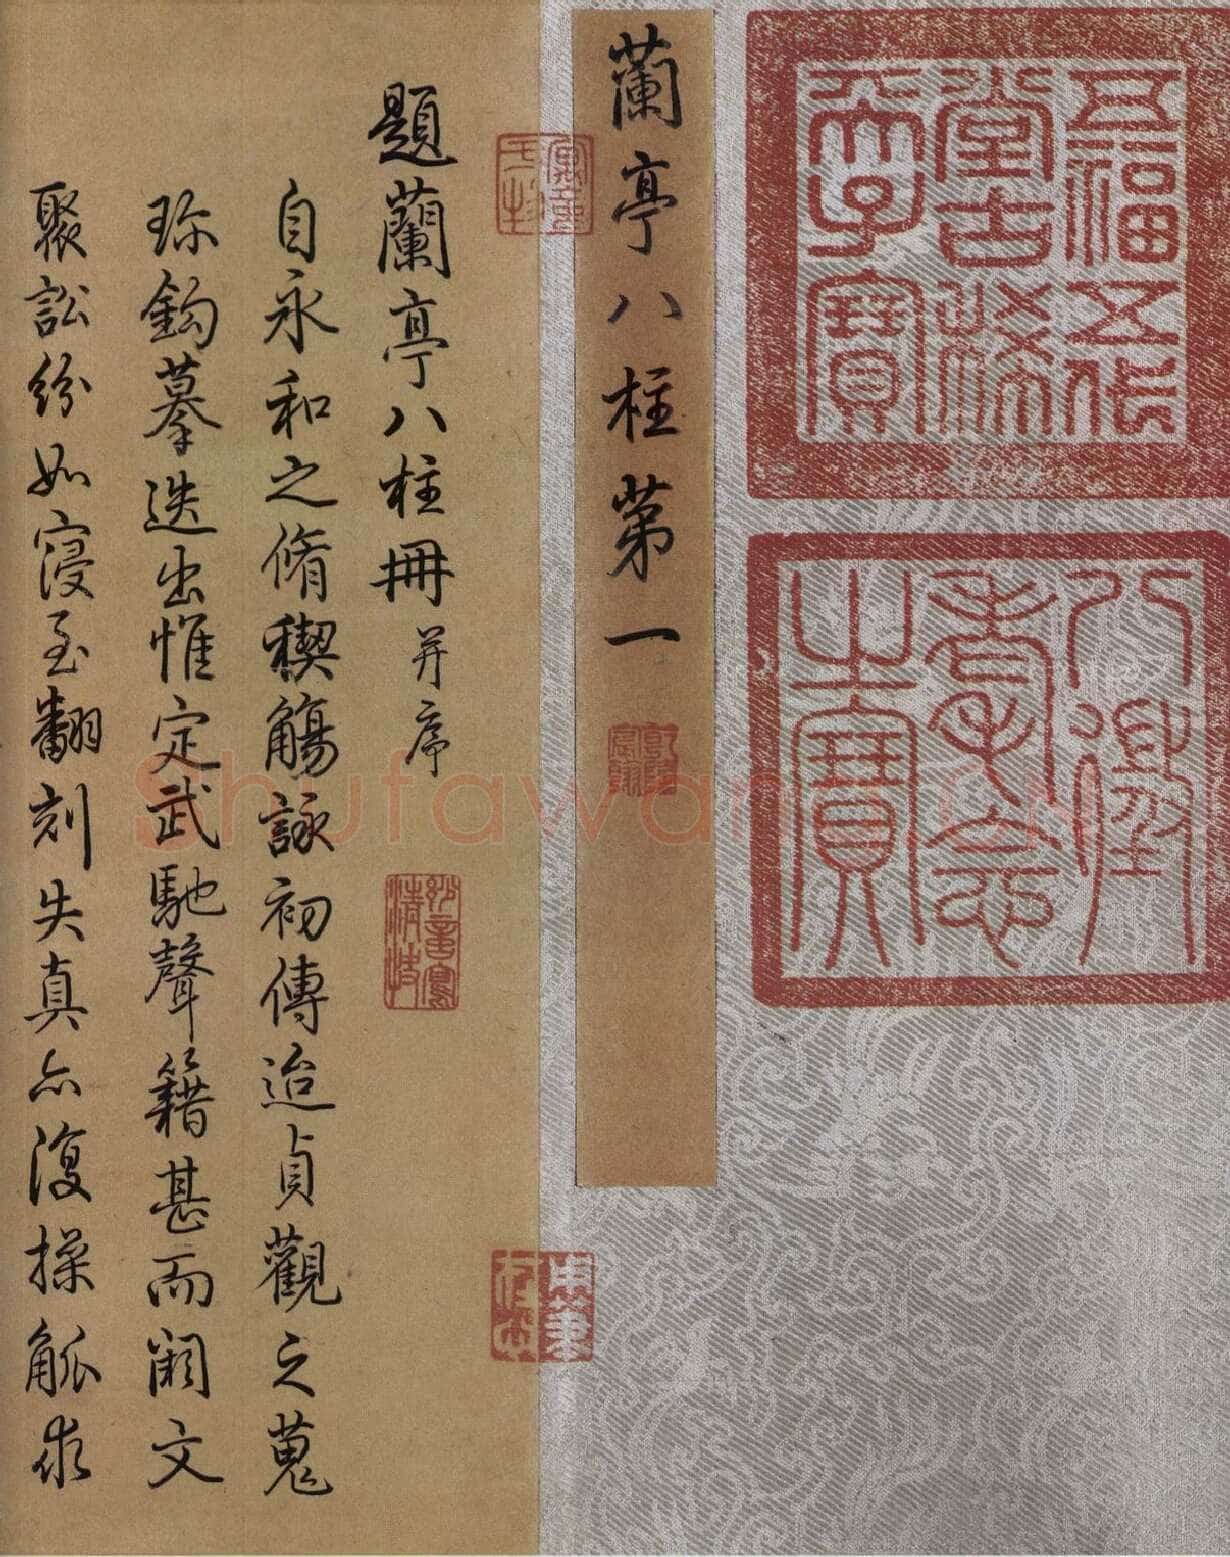 五福五代
堂古稀
天子寶
八徵
耄念
之寶
蘭亭八柱第一
用筆
在心
題蘭亭八柱冊并序
妙意寫
清快
自永和之脩禊觴詠初傳迨貞觀之蒐
珎鈎摹迭出惟定武馳聲籍甚而闕文
聚訟紛如寖至翻刻失真亦復操觚求